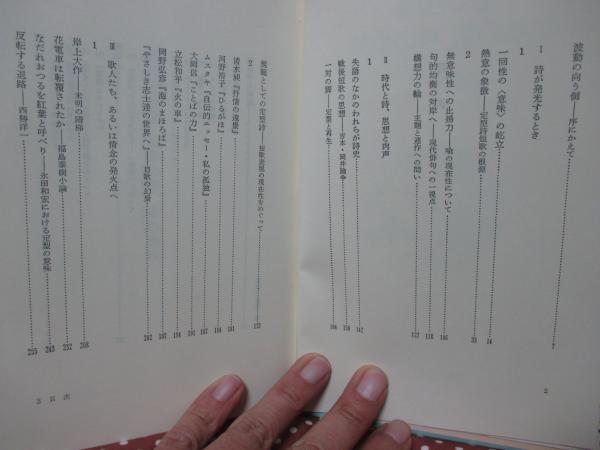 波動の向う側——序にかえて……7
I 詩が発光するとき
1
一回性の〈意味〉の屹立……14
熱意の象徴——定型詩短歌の根源……23
2
無意味性への止揚力——喩の現在性について……105
句的均衡の対岸へ——現代俳句への一視点……118
構想力の輪——主題と連作への問い……122
II 時代と詩、思想と肉声
1
失語のなかのわれらが詩史……142
戦後短歌の思想——吉本・岡井論争……150
一対の脚——定業と再生……166
2
展観としての定型詩——短歌表現の現在性をめぐって……173
清水昶『抒情の遠景』……181
河野裕子『ひるがほ』……184
ムスタキ『自伝的エッセー・私の孤独』……187
大岡信『ことばの力』……191
立松和平『火の車』……194
岡野弘彦『海のまほろば』……197
『やさしき志士達の世界へ』——自歌の幻景……202
III 歌人たち、あるいは情念の発火点へ
1
岸上大作——未明の階梯……208
花電車は転覆されたか——福島泰樹小論……232
なだれおつるを紅葉と呼べり——永田和宏における定型の意味……243
反転する退路——西勝洋一……255
2
3 目次